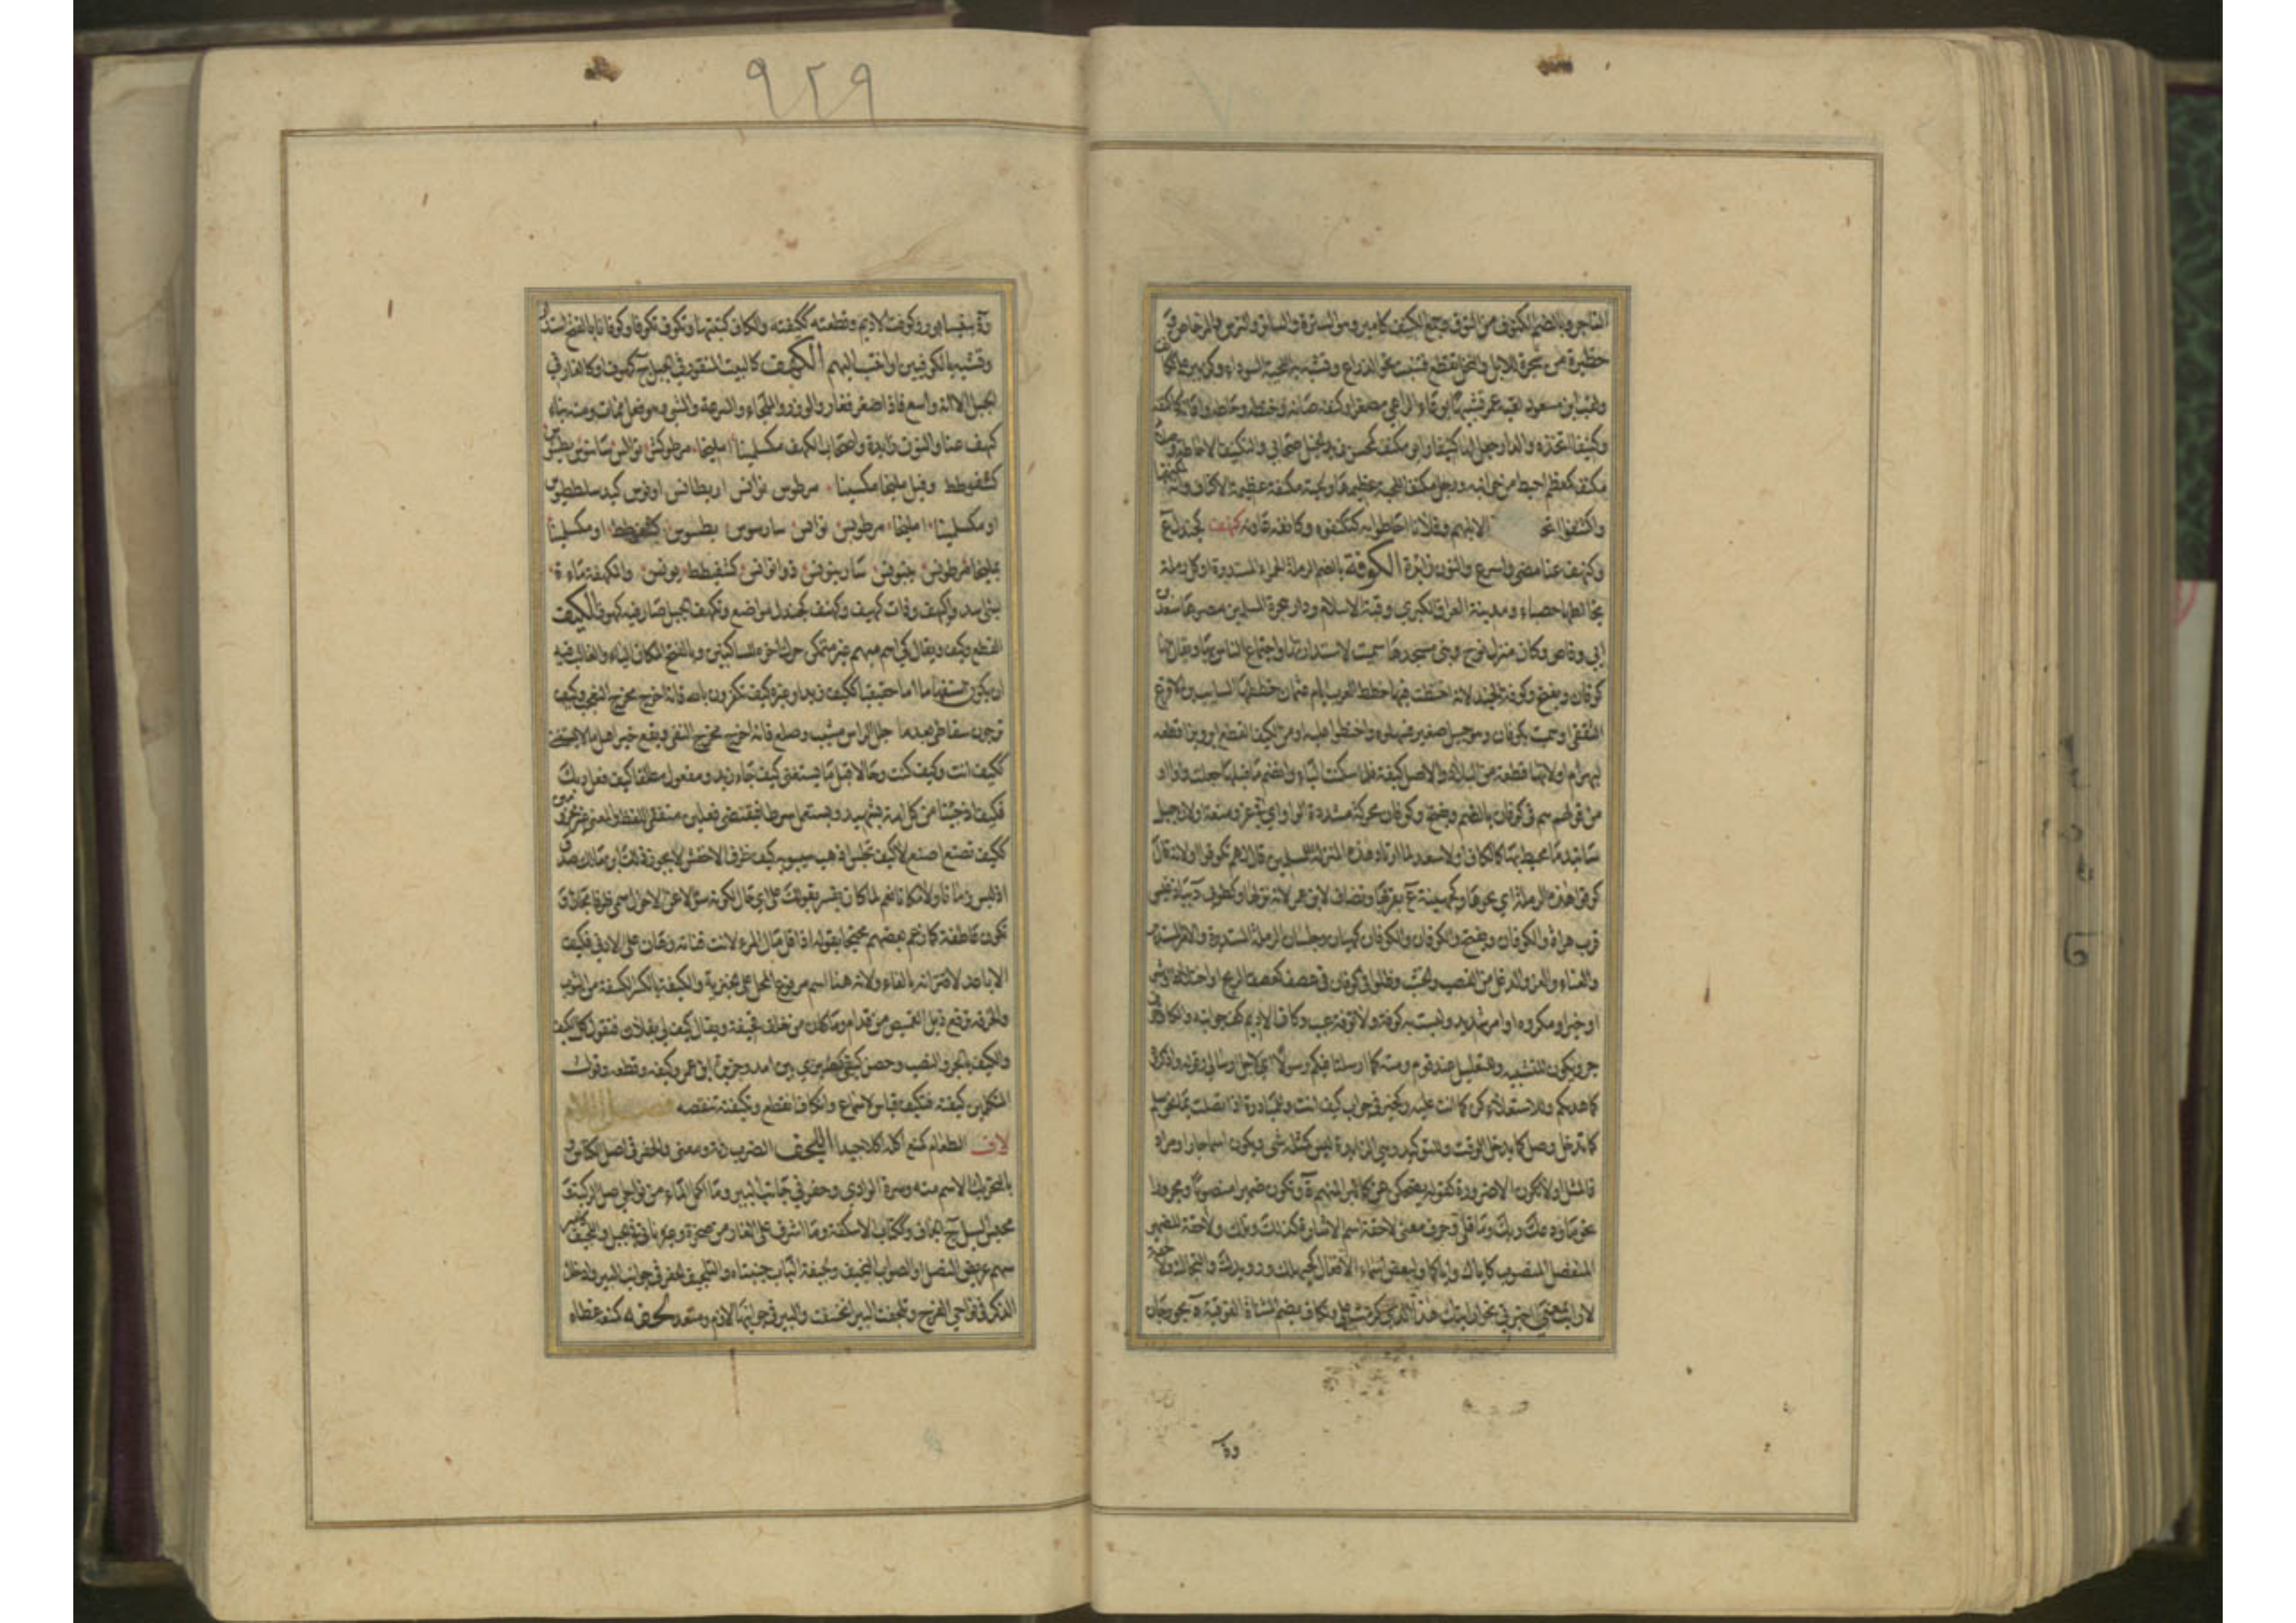 التاجر وبالضم الكنوف من النوق وجمع الكنيف كامير وهو السترة والساتر والترس والمرحاض و
حظيرة من شجرة للابل والنخل تقطع فتنبت نحو الذراع وتشبه بها اللحية السوداء وكزبير علم كا
ولقب ابن مسعود لقبه عمر تشبيها بوعاء الراعي مصغرا وكنفه صانه وحفظه وحاطه واعانه كاكنفه
وكنيفا اتخذه والدار جعل لها كنيفا وابو مكنف كمحسن زيد الخيل صحابي والتكنيف الاحاطة و
مكنف كمعظم احيط من جوانبه ورجل مكنف اللحية عظيمها ولحية مكنفة عظيمة الاكناف وانه لمكنفها
واكتنفوا اتخذوا لابلهم وفلانا احاطوا به كتكنفوه وكانفه عاونه كهنف كجندل ع
وكنهف عنا مضى واسرع والنون زائدة الكوفة بالضم الرملة الحمراء المستديرة او كل رملة
يخالطها حصباء ومدينة العراق الكبرى وقبة الاسلام ودار هجرة المسلمين مصرها سعد بن
ابي وقاص وكان منزل نوح وبنى مسجدها سميت لاستدارتها واجتماع الناس بها ويقال لها
كوفان ويفتح وكوفة الجند لانه اختطت فيها خطط العرب ايام عثمان خططها السائب بن الاقرع
الثقفي او سميت بكوفان وهو جبيل صغير فسهلوه واختطوا عليه او من الكيف القطع ابرويز اقطعه
لبهرام او لانها قطعة من البلاد والاصل كيفة فلما سكنت الياء وانضم ما قبلها جعلت واوا او
من قولهم هم في كوفان بالضم ويفتح وكوفان محركة مشددة الواو اي في عز ومنعة او لان جبل
ساتيدما محيط بها كالكاف او لان سعدا لما ارتاد هذه المنزلة للمسلمين قال لهم تكوفوا او لانه قال
كوفوا هذه الرملة اي نحوها وكجهينة ع بقربها ويضاف لابن عمر لانه نزلها وكطوبى د بباذغيس
قرب هراة والكوفان ويفتح والكوفان والكوفان كهيبان وجلسان الرملة المستديرة والامر المستدير
والعناء والعز والدغل من القصب والخشب وظلوا في كوفان في عصف كعصف الريح او اختلاط وشر
او حيرة او مكروه او امر شديد وليست به كوفة ولا توفة عيب وكاف الاديم كف جوانبه والكاف حرف
جر ويكون للتشبيه وللتعليل عند قوم ومنه كما ارسلنا فيكم رسولا اي لاجل ارسالي وقوله واذكروه
كما هداكم وللاستعلاء كن كما انت عليه وكخير في جواب كيف انت وللمبادرة اذا اتصلت بما نحو سلم
كما تدخل وصل كما يدخل الوقت وللتوكيد وهي الزايدة ليس كمثله شي ويكون اسما جارا مرادفا
لمثل او لا يكون الا ضرورة كقوله يضحكن عن كالبرد المنهم وتكون ضميرا منصوبا ومجرورا
نحو ما ودعك ربك وما قلى وحرف معنى لاحقة اسم الاشارة كذلك وتلك ولاحقة للضمير
المنفصل المنصوب كاياك واياكما ولبعض اسماء الافعال كحيهلك ورويدك والنجاءك ولاحقة
لارايت بمعنى اخبرني نحو ارايتك هذا الذي كرمت علي وتكاف بضم المثناة الفوقية ة بجوزجان
وة
٩٢٩
وة بنيسابور وكوفت الاديم وقطعته ككيفته والكاف كتبتها وتكوف تكوفا وكوفانا بالفتح استدار
وتشبه بالكوفيين او انتسب اليهم الكهف كالبيت المنقور في الجبل ج كهوف او كالغار في
الجبل الا انه واسع فاذا صغر فغار والوزر والملجاء والسرعة والمشي وهو فعل ممات ومنه بناء
كهنف عنا والنون زايدة واصحاب الكهف مكسلينا امليخا مرطوكش نوالس سانيوس بطنيوس
كشفوطط وقيل مليخا مكسلينا مرطوس نوانس اربطانس اونوس كيد سلططنوس
او مكسلينا امليخا مرطونس نوانس سارسوس بطنيوس كشفوطط او مكسلينا
يمليخا مرطونس ينيونس سارينوس ذوانوانس كشفيطط يونس والكهفة ماءة
لبني اسد واكيهف وذات كهيف وكنهف كجندل مواضع وتكهف الجبل صار فيه كهوف الكيف
القطع وكيف ويقال كي اسم مبهم غير متمكن حرك اخره للساكنين وبالفتح لمكان الياء والغالب فيه
ان يكون استفهاما اما حقيقيا ككيف زيد او غيره كيف تكفرون بالله فانه اخرج مخرج التعجب وكيف
ترجون سقاطي بعدما جلل الراس مشيب وصلع فانه اخرج مخرج النفي ويقع خبرا قبل ما لا يستغنى
ككيف انت وكيف كنت وحالا قبل ما يستغنى كيف جاء زيد ومفعولا مطلقا كيف فعل ربك
فكيف اذا جئنا من كل امة بشهيد ويستعمل شرطا فيقتضي فعلين متفقي اللفظ والمعنى غير مجزومين
ككيف تصنع اصنع لا كيف تجلس اذهب سيبويه كيف ظرف الاخفش لا يجوز ذلك ابن مالك صدق
اذ ليس زمانا ولا مكانا نعم لما كان يفسر بقولك على اي حال لكونه سؤالا عن الاحوال سمي ظرفا مجازا و
تكون عاطفة كما زعم بعضهم محتجا بقوله اذا قل مال المرء لانت قناته وهان على الادنى فكيف
الاباعد لاقترانه بالفاء ولانه هنا اسم مرفوع المحل على الخبرية والكيفة بالكسر الكسفة من الثوب
والخرقة ترقع ذيل القميص من قدام وما كان من خلف فحيفة ويقال كيف لي بفلان فتقول كل الكيف
والكيف بالجر والنصب وحصن كيفى كضيزى بين امد وجزيرة ابن عمر وكيفه وقطعه وقول
المتكلمين كيفته فتكيف قياس لا سماع وانكاف انقطع وتكيفه تنقصه فصل اللام
لاف الطعام كمنع اكله اكلا جيدا اللجف الضرب زنة ومعنى والحفر في اصل الكناس و
بالتحريك الاسم منه وسرة الوادي وحفر في جانب البير وما اكل الماء من نواحي اصل الركية و
محبس السيل ج الجاف وككتاب الاسكفة وما اشرف على الغار من صخرة وغيرها ناتئ في الجبل واللجيف
سهم عريض النصل او الصواب النجيف ولجيفة الباب جنبتاه والتلجيف الحفر في جوانب البير وادخال
الذكر في نواحي الفرج وتلجفت البير انخسفت والبير في جوانبها لازم ومتعد لحفه كمنعه غطاه